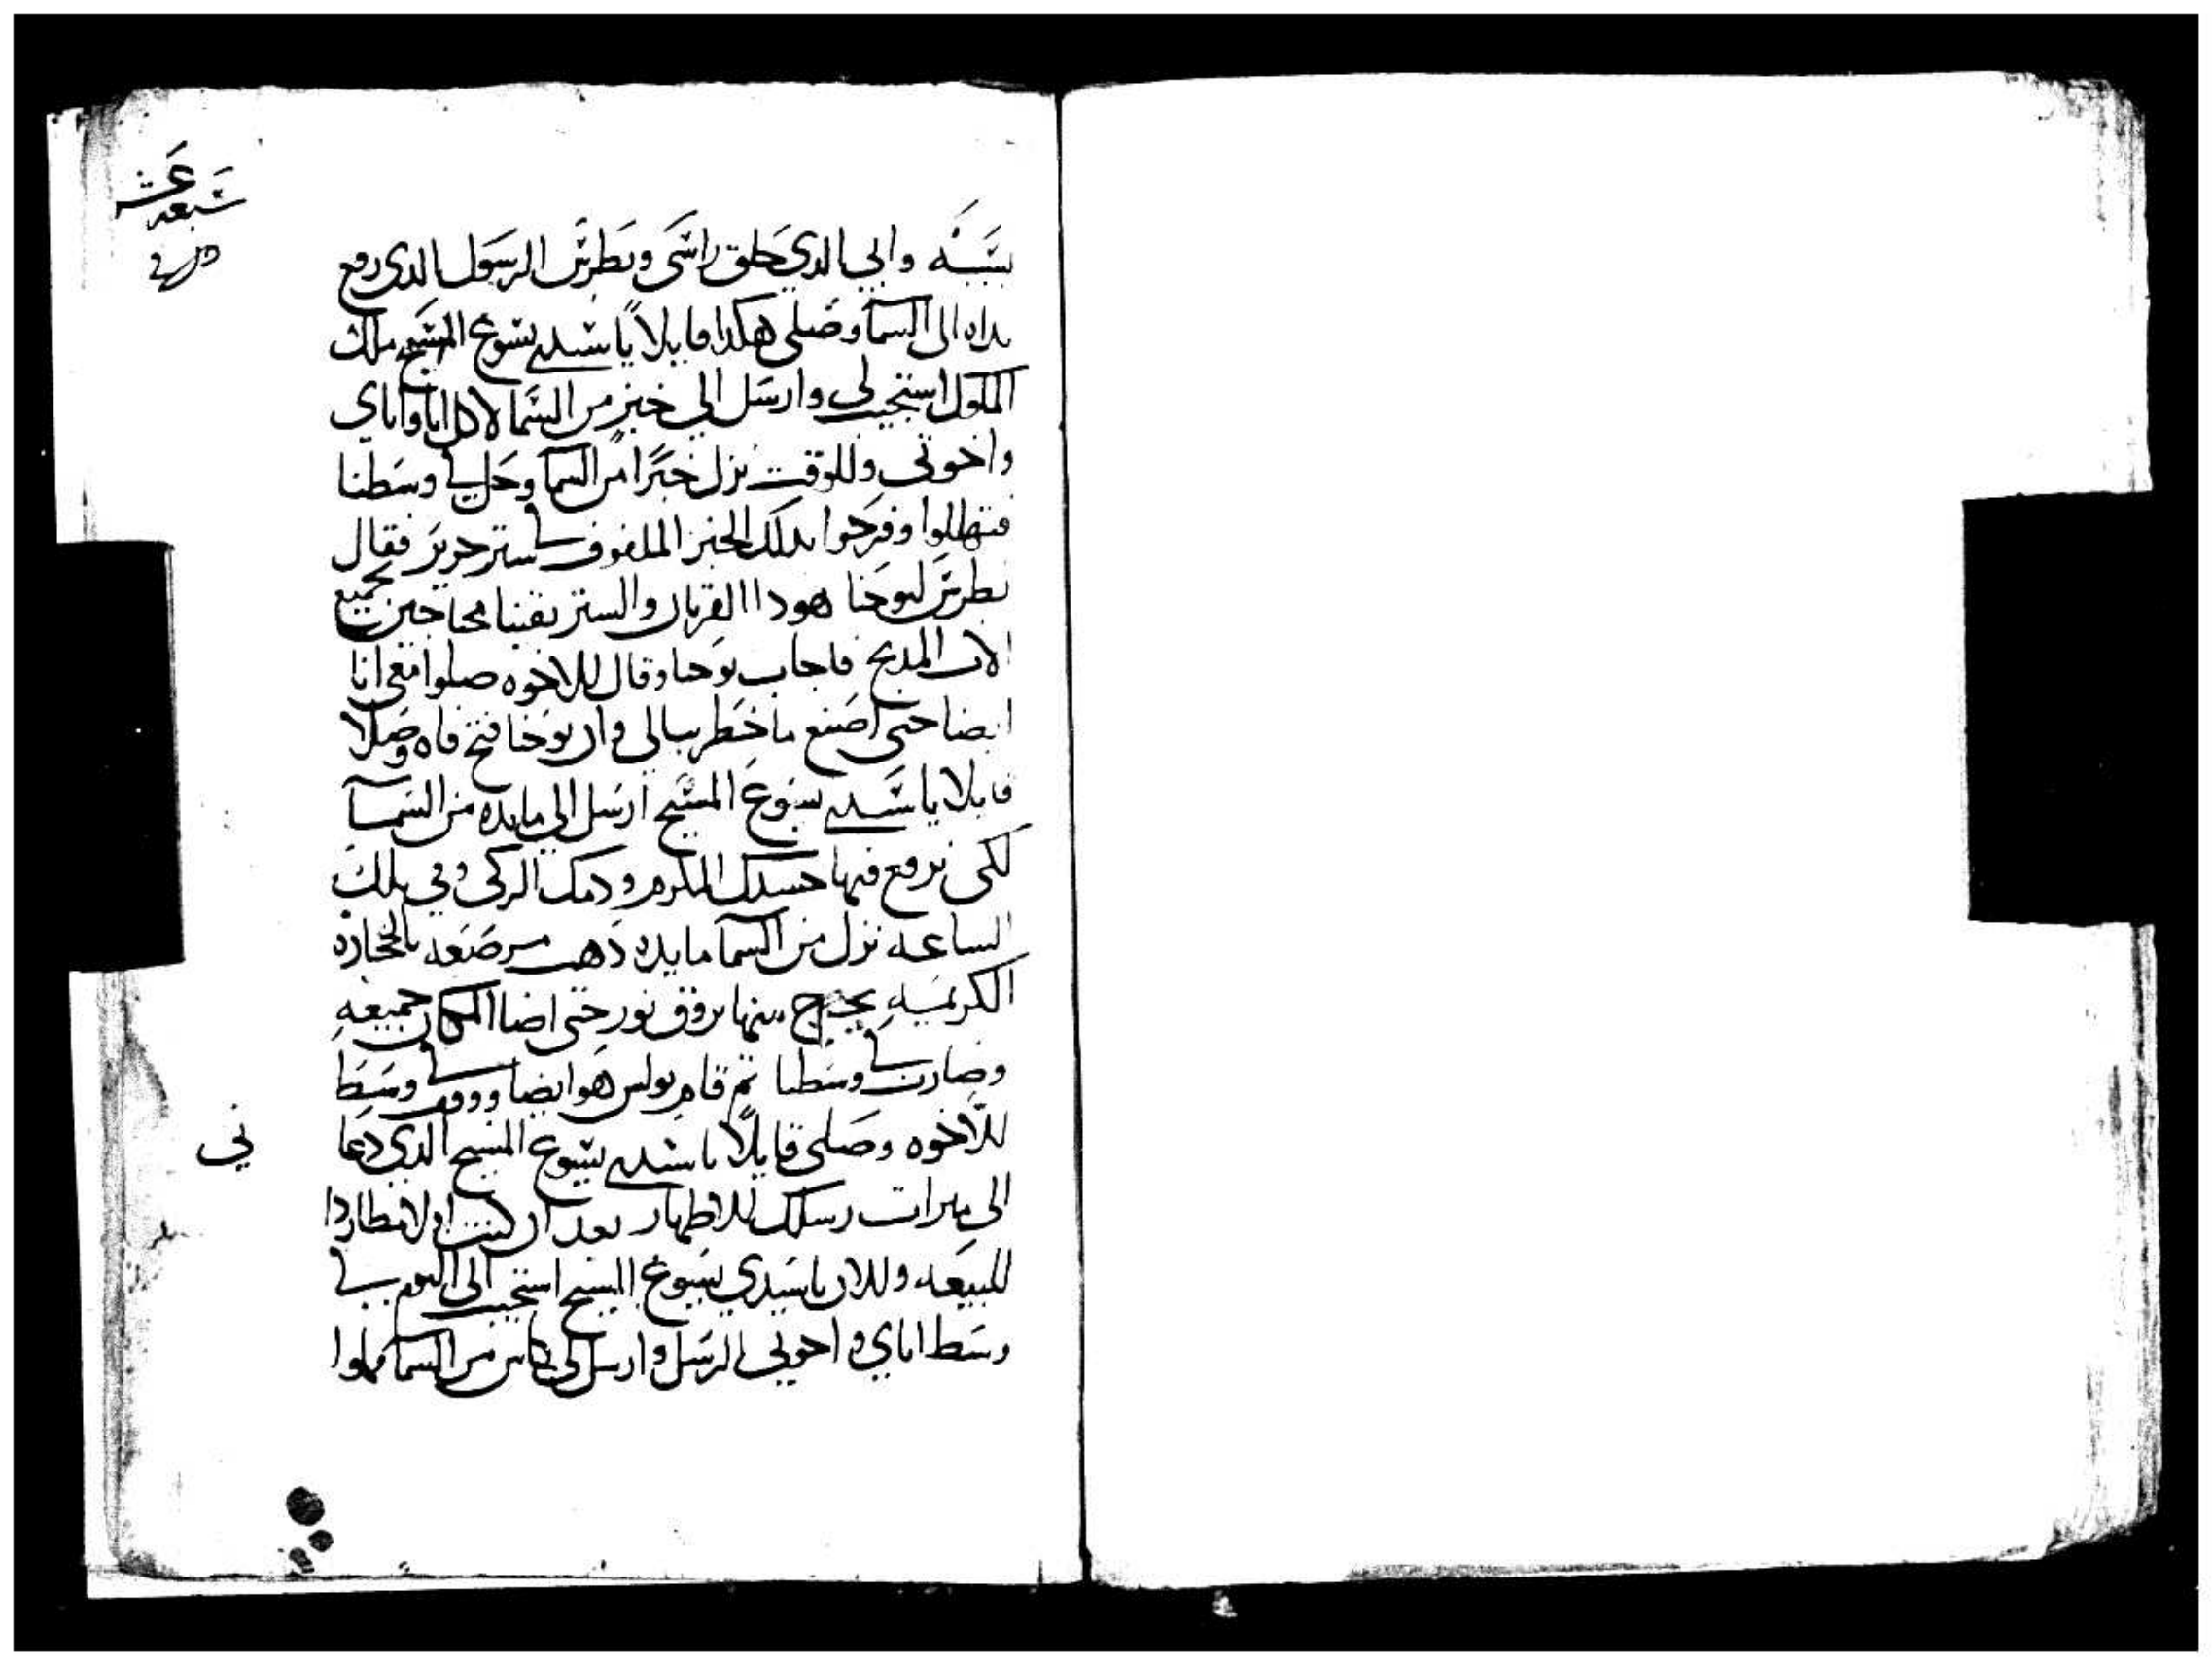 سبعه عشر
بسببه والي الدي حلق راسى وبطرس الرسول الدى رفع
يداه الى السما وصلى هكدا قايلاً يا سيدي يسوع المسيح ملك
الملوك استجيب لى وارسل الي خبز من السما لاكل انا واباى
واخوتى وللوقت نزل خبزاً من السما وحل في وسطنا
فتهللوا وفرحوا بدلك الخبز الملفوف في ستر حرير فقال
بطرس ليوحنا هودا القربان والستر بقينا محتاجين جميع
الات المدبح فاجاب يوحنا وقال للاخوه صلوا معى انا
ايضا حتى اصنع ما خطر ببالى وان يوحنا فتح فاه وصلا
قايلا يا سيدي يسوع المسيح ارسل الي مايده من السما
لكى نرفع فيها جسدك المكرم ودمك الزكى وفي تلك
الساعه نزل من السما مايده دهب مرصعه بالحجاره
الكريمه يخرج منها بروق نور حتى اضا المكان جميعه
وصارت في وسطنا تم قام بولس هو ايضا ووقف في وسط
للاخوه وصلى قايلاً يا سيدي يسوع المسيح الدي دعا
ني
الى ميرات رسلك الاطهار بعد ان كنت اولا مطاردا
للبيعه وللان يا سيدي يسوع المسيح استجيب الى اليوم في
وسط اباي واخوتي الرسل وارسل لى كاس من السما مملوا